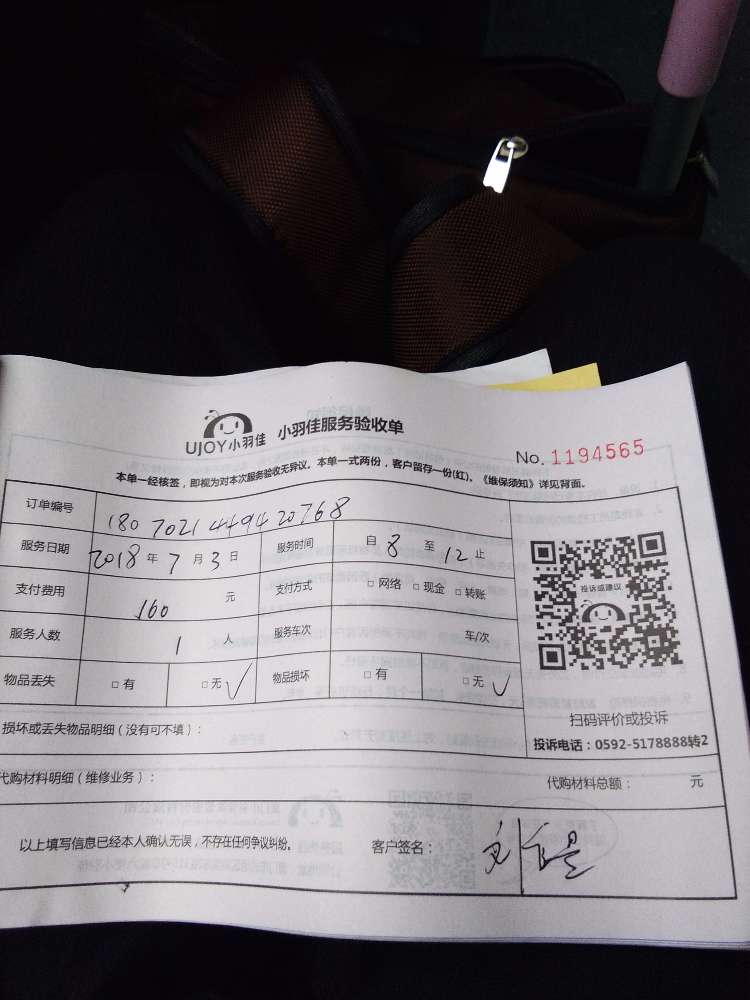 UJOY小羽佳 小羽佳服务验收单
No. 1194565
本单一经核签，即视为对本次服务验收无异议。本单一式两份，客户留存一份(红)。《维保须知》详见背面。
订单编号 1807021449420768
服务日期 2018年7月3日 服务时间 自8至12止
支付费用 160元 支付方式 □网络 □现金 □转账
服务人数 1人 服务车次 车/次
物品丢失 □有 □无✓ 物品损坏 □有 □无✓
投诉或建议
扫码评价或投诉
投诉电话：0592-5178888转2
损坏或丢失物品明细（没有可不填）：
代购材料明细（维修业务）： 代购材料总额： 元
以上填写信息已经本人确认无误，不存在任何争议纠纷。 客户签名：